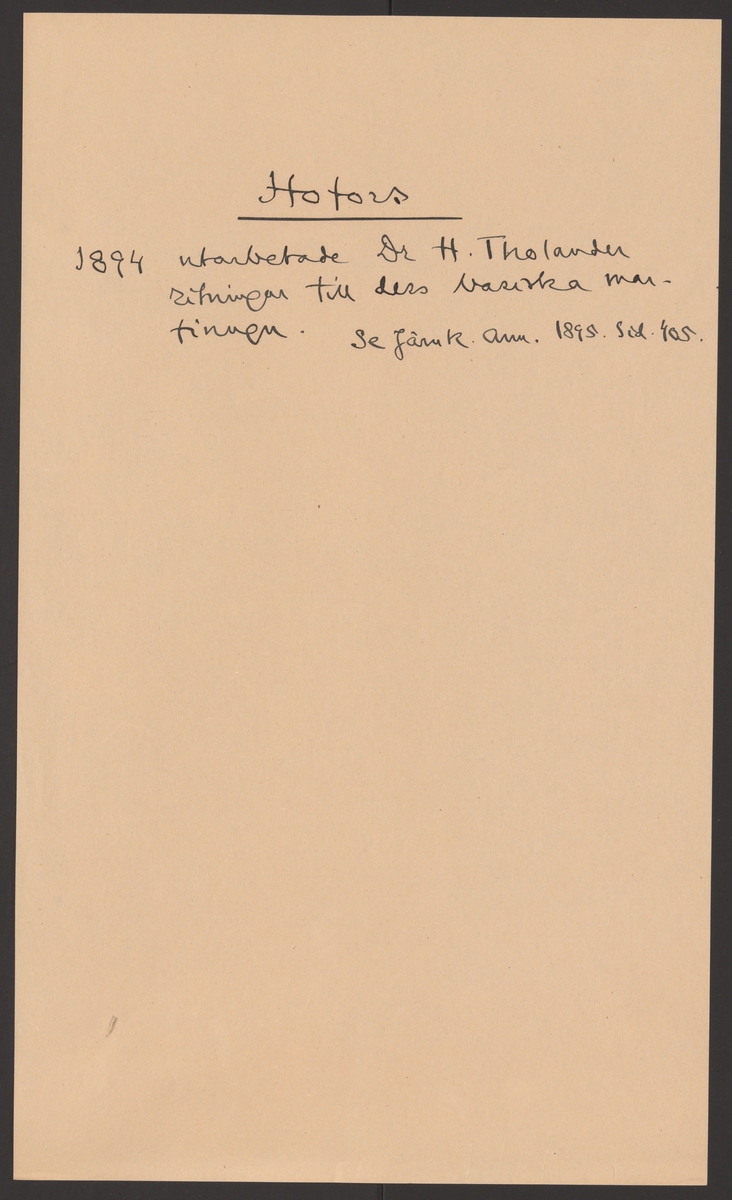 Hofors
1894 utarbetade Dr H. Tholander
ritningar till dess basiska mar-
tinugn.
Se Järnk. Ann. 1895. Sid. 405.